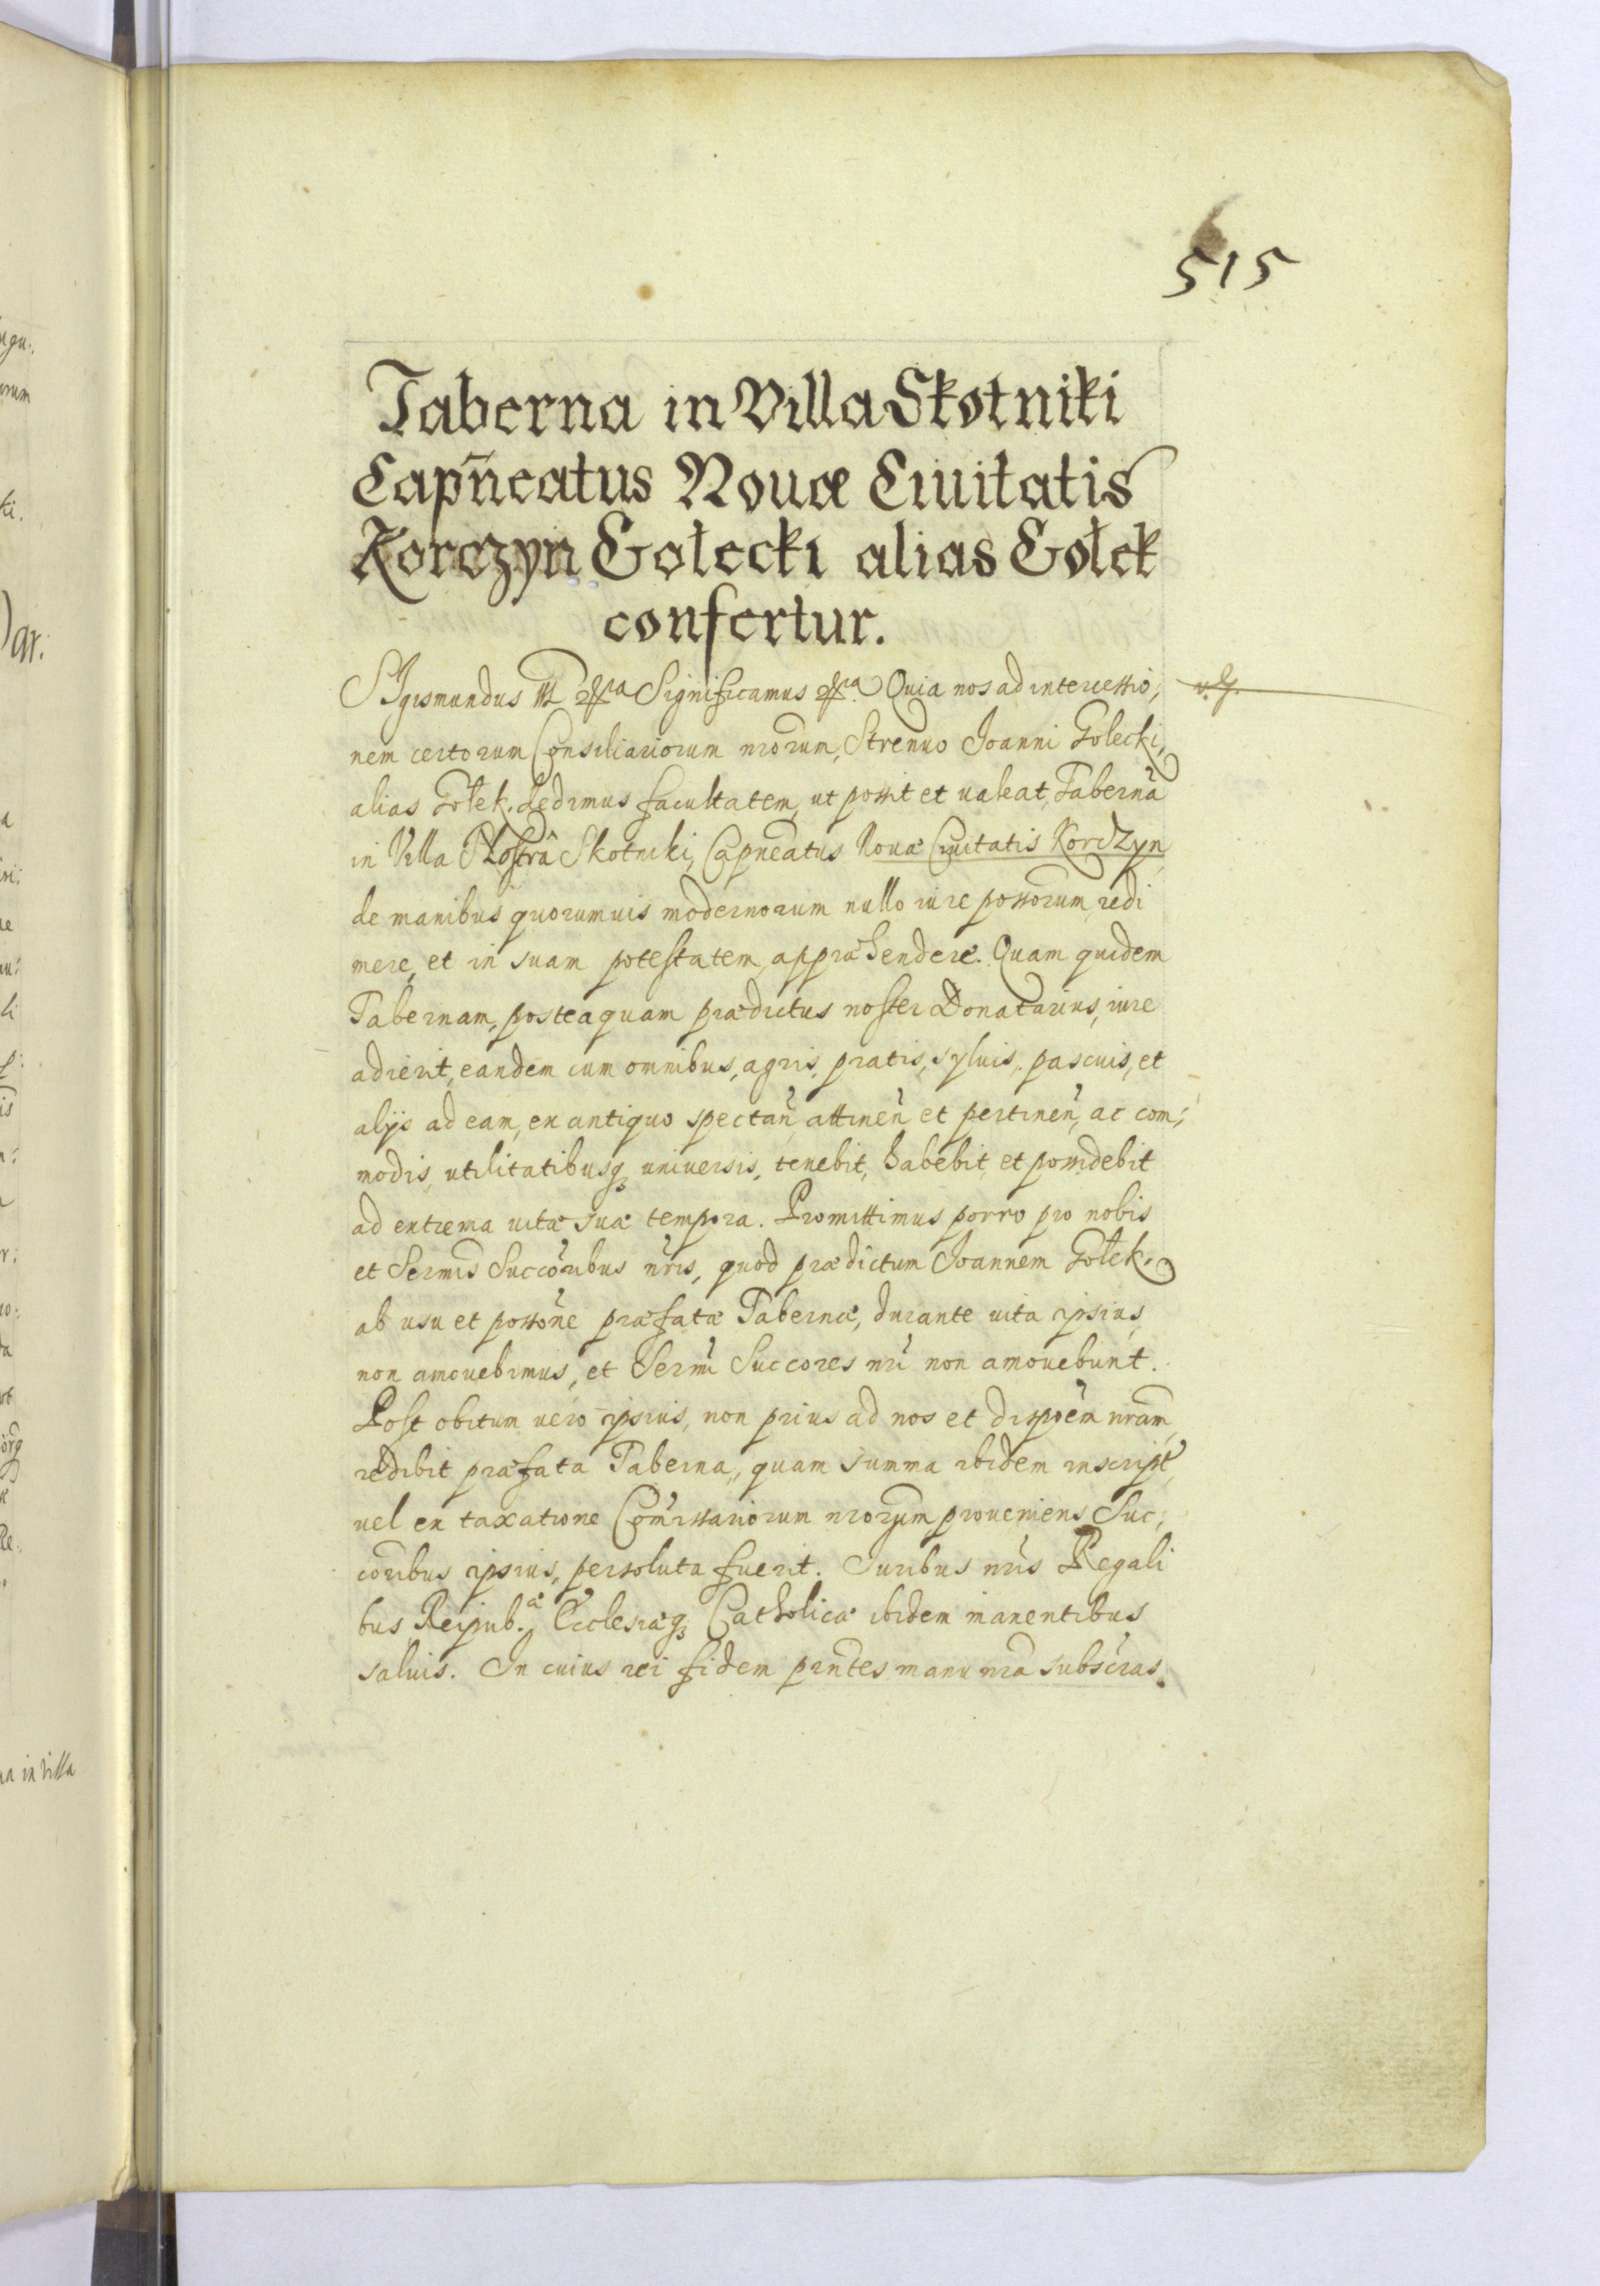 515
Taberna in Villa Skotniki
Capn̄eatus Nouæ Ciuitatis
Korczyn Gołecki alias Gołek
confertur.
SIgismundus III etca Significamus etca Quia nos ad intercessio,
nem certorum Consiliariorum nrorum, Strenuo Joanni Gołecki,
alias Gołek. dedimus facultatem, ut possit et ualeat, Tabernā
in Villa Nostrâ Skotniki, Capneatus Nouæ Ciuitatis Korczyn,
de manibus quorumuis modernorum nullo iure possorum, redi
mere, et in suam potestatem appræhendere. Quam quidem
Tabernam, posteaquam prædictus noster Donatarius, iure
adierit, eandem cum omnibus, agris, pratis, syluis, pascuis, et
alijs ad eam, ex antiquo spectan, attinen et pertinen, ac com,
modis, utilitatibusq universis, tenebit, habebit, et possidebit
ad extrema uitæ suæ tempora. Promittimus porro pro nobis
et Sermis Succoribus nris, quod prædictum Joannem Gołek,
ab usu et possone præfatæ Tabernæ, durante uita ipsius,
non amouebimus, et Sermi Succores nri non amouebunt.
Post obitum uero ipsius, non prius ad nos et dispoem nram,
redibit præfata Taberna, quam summa ibidem inscript,
uel ex taxatione Comissariorum nrorum proueniens Suc,
coribus ipsius, persoluta fuerit. Juribus nris Regali
bus Reipub.æ Ecclesiæq Catholicæ ibidem manentibus
saluis. In cuius rei fidem pntes manu nra subscras.
ki.
ar.
li
na in Villa